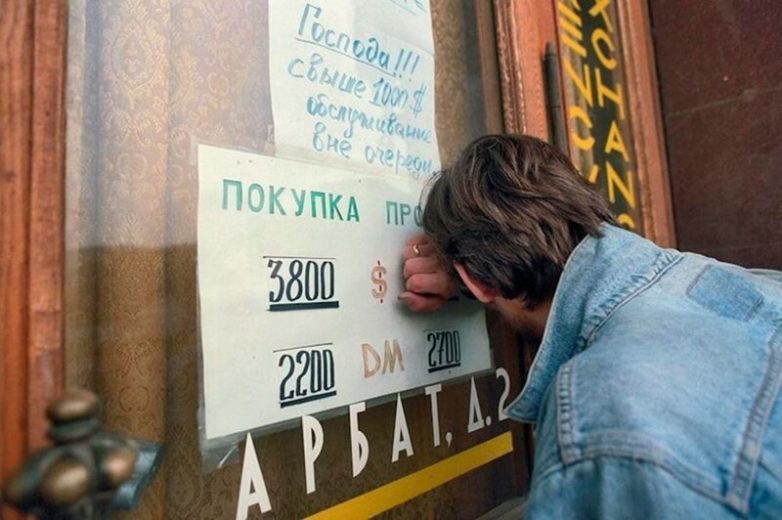 Господа!!!
свыше 1000$
обслуживание
вне очереди
ПОКУПКА ПРО
3800 $
2200 DM 2700
АРБАТ, Д. 2
EXCHAN